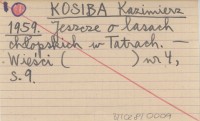 KOSIBA Kazimierz
1959. Jeszcze o lasach
chłopskich w Tatrach. —
Wieści ( ) nr 4,
s. 9.